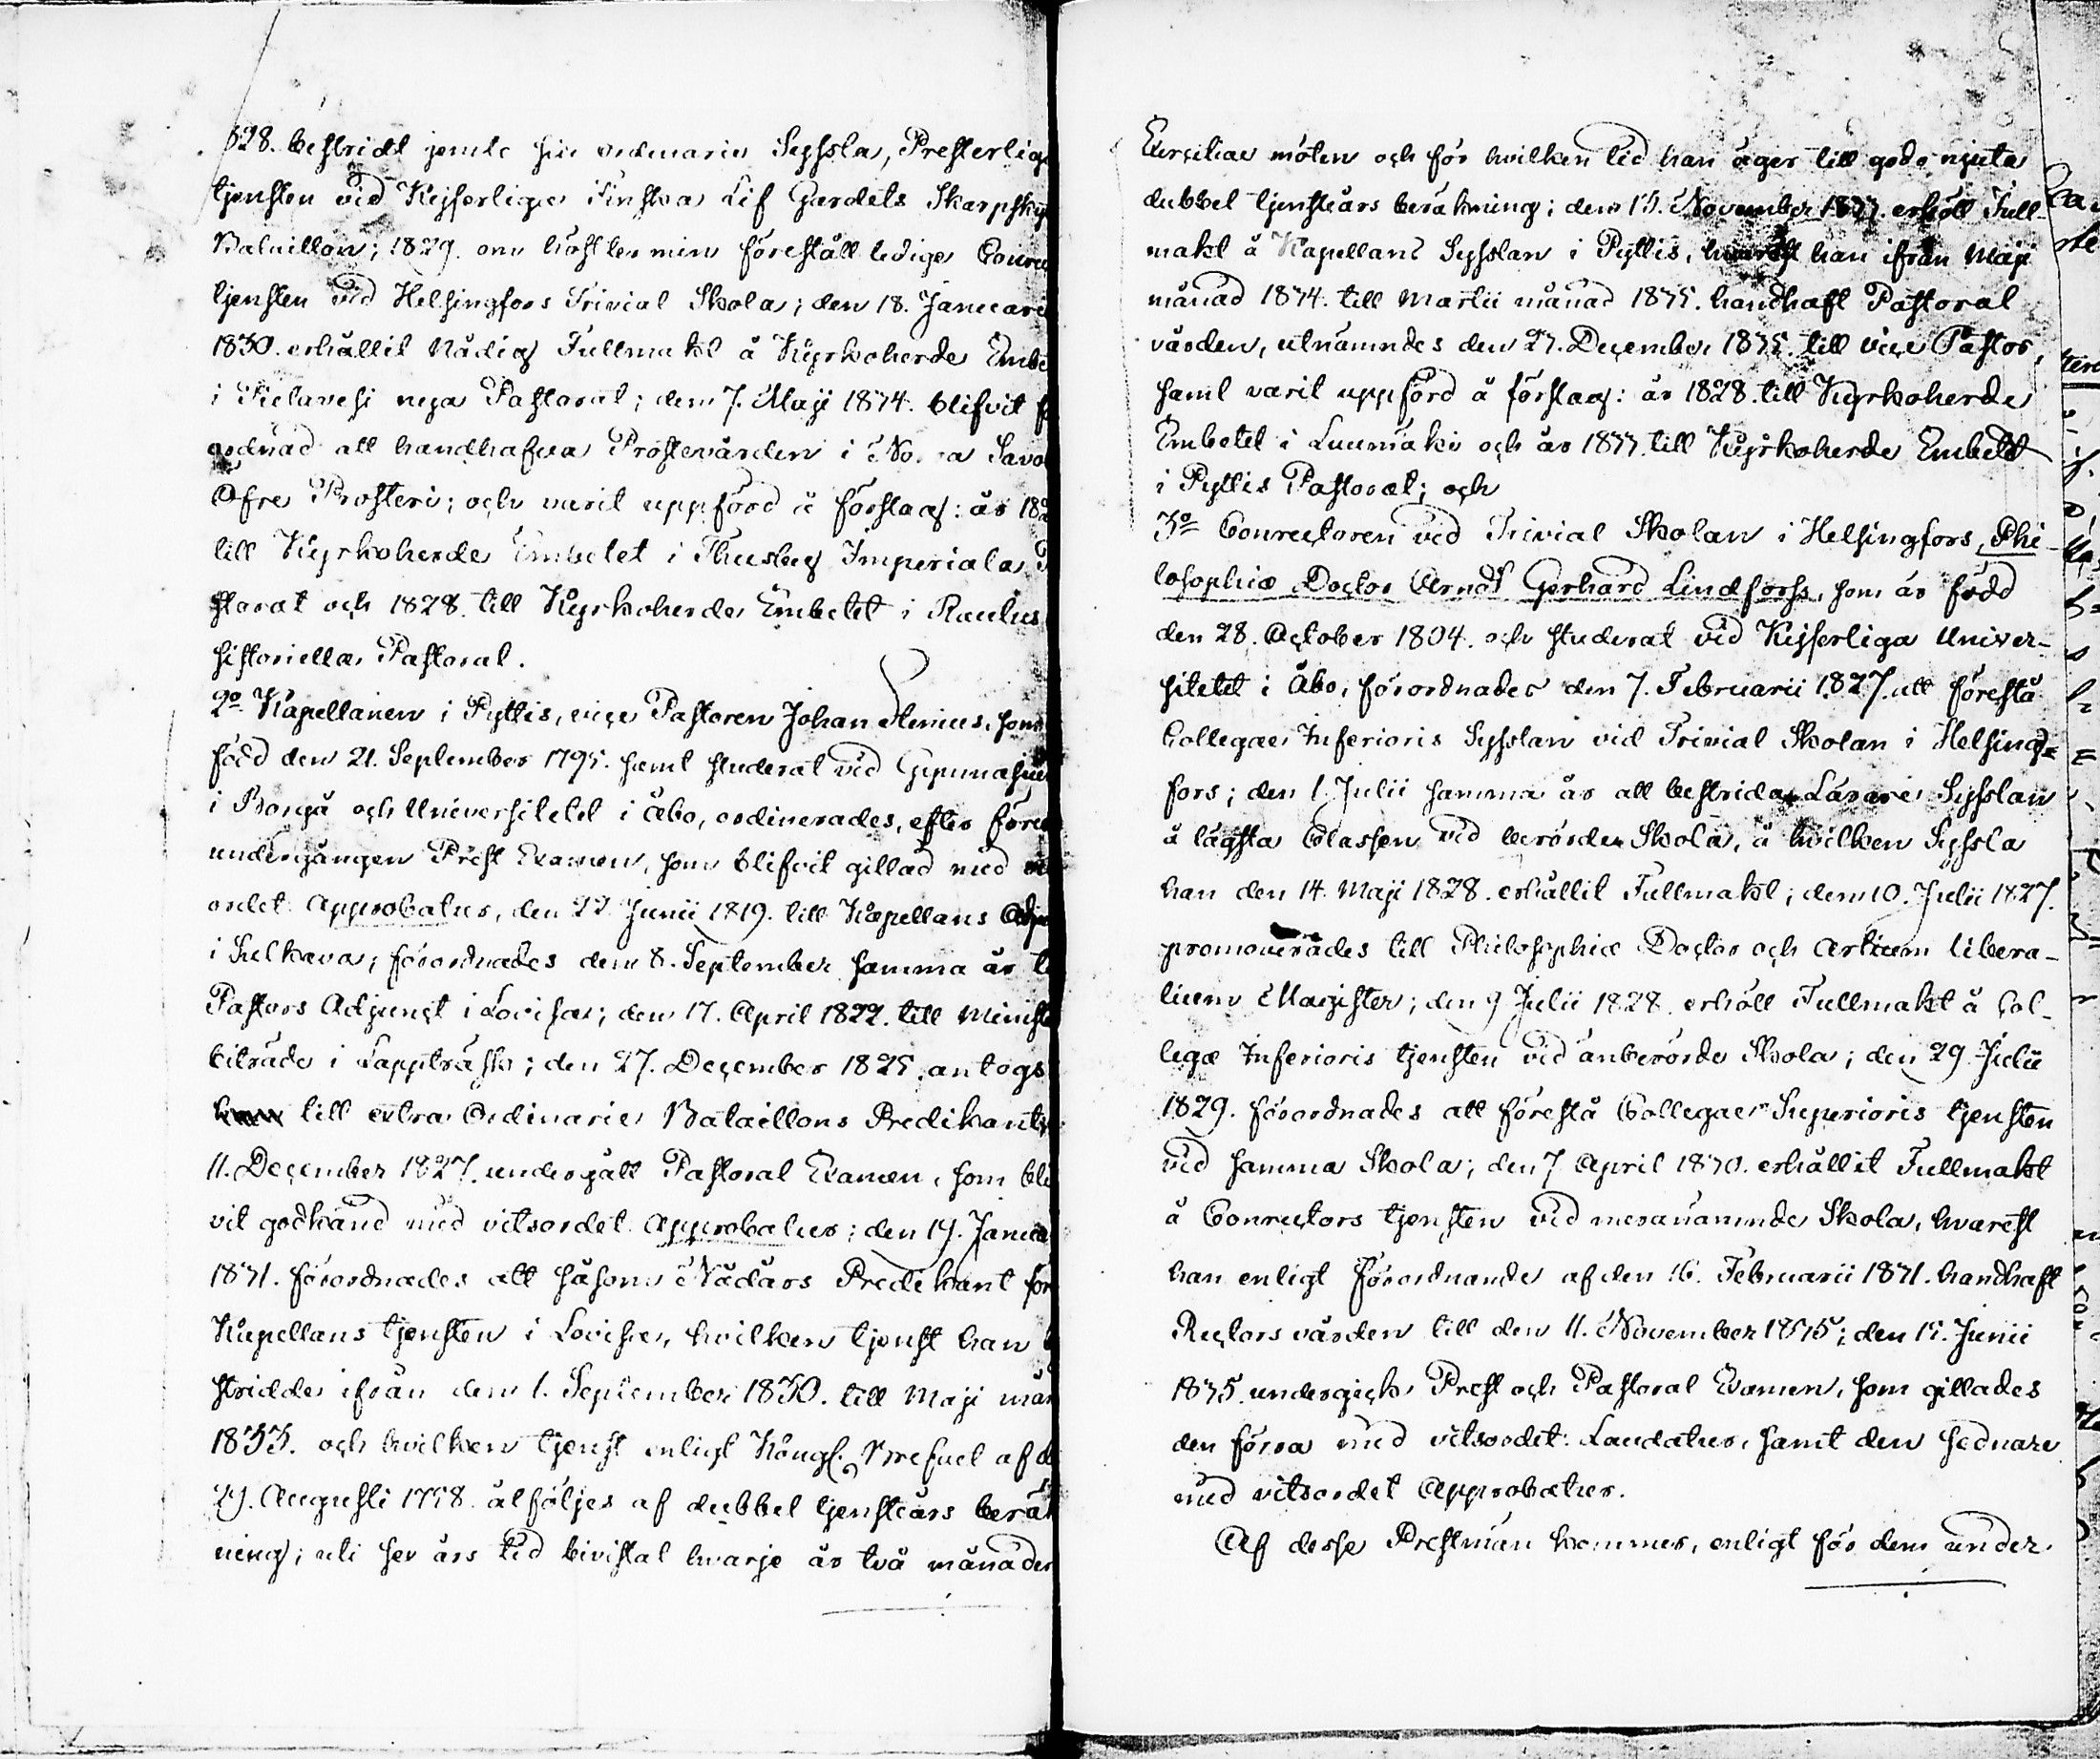 828. bestridt jemte sin ordinarie Syssla, Presterlig
tjensten vid Kejserliga Finska Lif Gardets Skarpsky
Bataillon; 1829. om höst termin förestått lediga Conre
tjensten vid Helsingfors Trivial Skola; den 18. Januari
1830. erhållit Nådig Fullmakt å Kyrkoherde Embe
i Pielavesi nya Pastorat; den 7. Maji 1834. blifvit f
ordnad att handhafva Prostevården i No a Savo
Öfre Prosteri; och varit uppförd å förslag: år 182
till Kyrkoherde Embetet i Thusby Imperiala P
storat och 1828. till Kyrkoherde Embetet i Rautus
sistoriella Pastorat.
2o Kapellanen i Pyttis, vice Pastoren Johan Stenius, som
född den 21. September 1795. samt studerat vid Gymnasiu
i Borgå och Universitetet i Åbo, ordinerades, efter föreg
undergången Prest Examen, som blifvit gillad med vi
ordet Approbatus, den 22 Junii 1819. till Kapellans Adju
i Sulkava; förordnades den 8. September samma år ti
Pastors Adjunct i Lovisa; den 17. April 1822. till Ministe
biträde i Lappträsk; den 27. December 1825. antogs
till extra Ordinarie Bataillons Predikant;
11. December 1827. undergått Pastoral Examen, som bli
vit godkänd med vitsordet Approbatus; den 19. Janua
1831. förordnades att såsom Nådårs Predikant för
Kapellans tjensten i Lovisa, hvilken tjenst han b
stridde ifrån den 1. September 1830. till Maji mån
1833. och hvilken tjenst enligt Kongl. Brefvet af d
29. Augusti 1758. åtföljes af dubbel tjensteårs beräk
ning; uti sex års tid bivistat hvarje år två månader
Exercitiae möten och för hvilken tid han äger till godo njuta
dubbel tjensteårs beräkning; den 13. November 1833. erhöll Full-
makt å Kapellans Sysslan i Pyttis, hvarest han ifrån Maji
månad 1834. till Martii månad 1835. handhaft Pastoral
vården, utnämndes den 27. December 1835. till vice Pastor,
samt varit uppförd å förslag: år 1828. till Kyrkoherde
Embetet i Luumäki och år 1833. till Kyrkoherde Embetet
i Pyttis Pastorat; och
3o Conrectoren vid Trivial Skolan i Helsingfors, Phi-
losophiæ Doctor Arndt Gerhard Lindforss, som är född
den 28. October 1804. och studerat vid Kejserliga Univer-
sitetet i Åbo, förordnades den 7. Februarii 1827. att förestå
Collegae Inferioris Sysslan vid Trivial Skolan i Helsing=
fors; den 1. Julii samma år att bestrida Lärare Sysslan
å lägsta Classen vid berörde Skola, å hvilken Syssla
han den 14. Maji 1828. erhållit Fullmakt; den 10. Julii 1827.
promoverades till Philosophiæ Doctor och Artium libera-
lium Magister; den 9 Julii 1828. erhöll Fullmakt å Col-
legæ Inferioris tjensten vid anberörde Skola; den 29. Julii
1829. förordnades att förestå Collegae Superioris tjensten
vid samma Skola; den 7 April 1830. erhållit Fullmakt
å Conrectors tjensten vid meranämnde Skola, hvarest
han enligt Förordnande af den 16. Februarii 1831. handhaft
Rectors vården till den 11. November 1835; den 15. Junii
1835. undergick Prest och Pastoral Examen, som gillades
den förra med vitsordet: Laudatur, samt den sednare
med vitsordet Approbatur.
Af desse Prestmän kommer, enligt för dem under